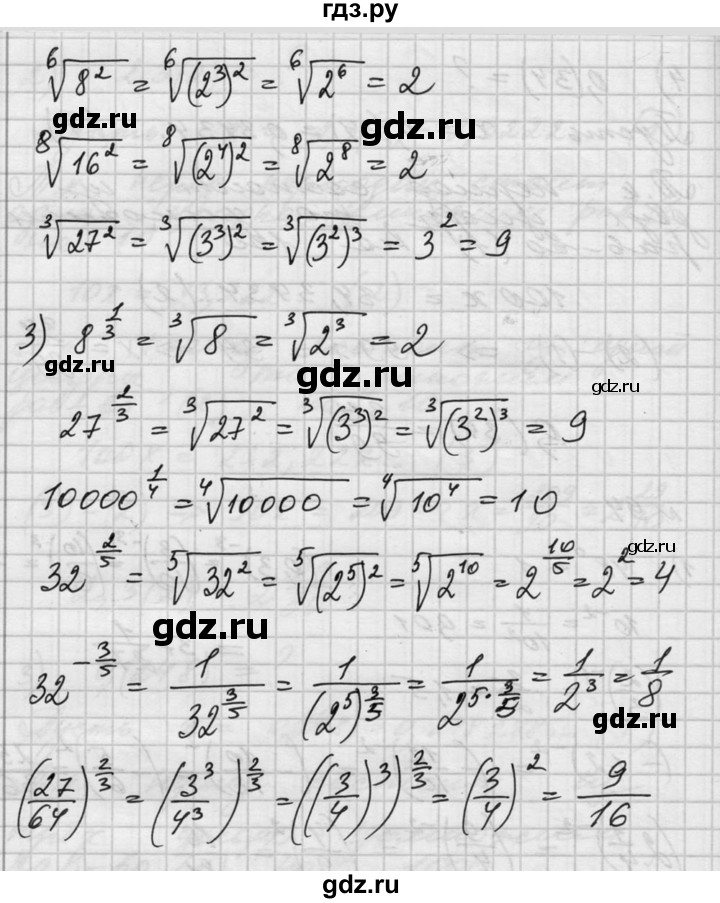 гдз.ру
⁶√8² = ⁶√(2³)² = ⁶√2⁶ = 2
gdz.ru gdz.ru
⁸√16² = ⁸√(2⁴)² = ⁸√2⁸ = 2
³√27² = ³√(3³)² = ³√(3²)³ = 3² = 9
3) 8^(1/3) = ³√8 = ³√2³ = 2
gdz.ru gdz.ru gdz.ru
27^(2/3) = ³√27² = ³√(3³)² = ³√(3²)³ = 9
10000^(1/4) = ⁴√10000 = ⁴√10⁴ = 10
gdz.ru
32^(2/5) = ⁵√32² = ⁵√(2⁵)² = ⁵√2¹⁰ = 2^(10/5) = 2² = 4
gdz.ru
32^(-3/5) = 1/32^(3/5) = 1/(2⁵)^(3/5) = 1/2^(5·3/5) = 1/2³ = 1/8
gdz.ru
(27/64)^(2/3) = (3³/4³)^(2/3) = ((3/4)³)^(2/3) = (3/4)² = 9/16
gdz.ru